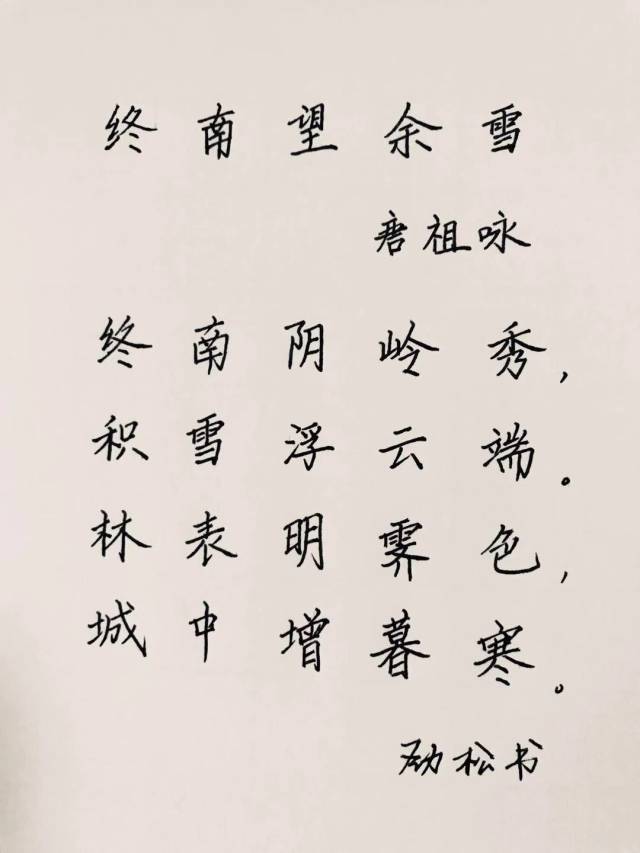 终南望余雪
唐祖咏
终南阴岭秀,
积雪浮云端。
林表明霁色,
城中增暮寒。
劲松书